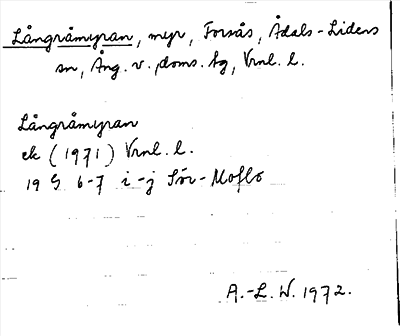 Långråmyran, myr, Forsås, Ådals-Lidens
sn, Ång. v. doms. sg, Vrnl. l.
Långråmyran
ek (1971) Vrnl. l.
19 G 6-7 i-j Sör-Moflo
A.-L. W. 1972.